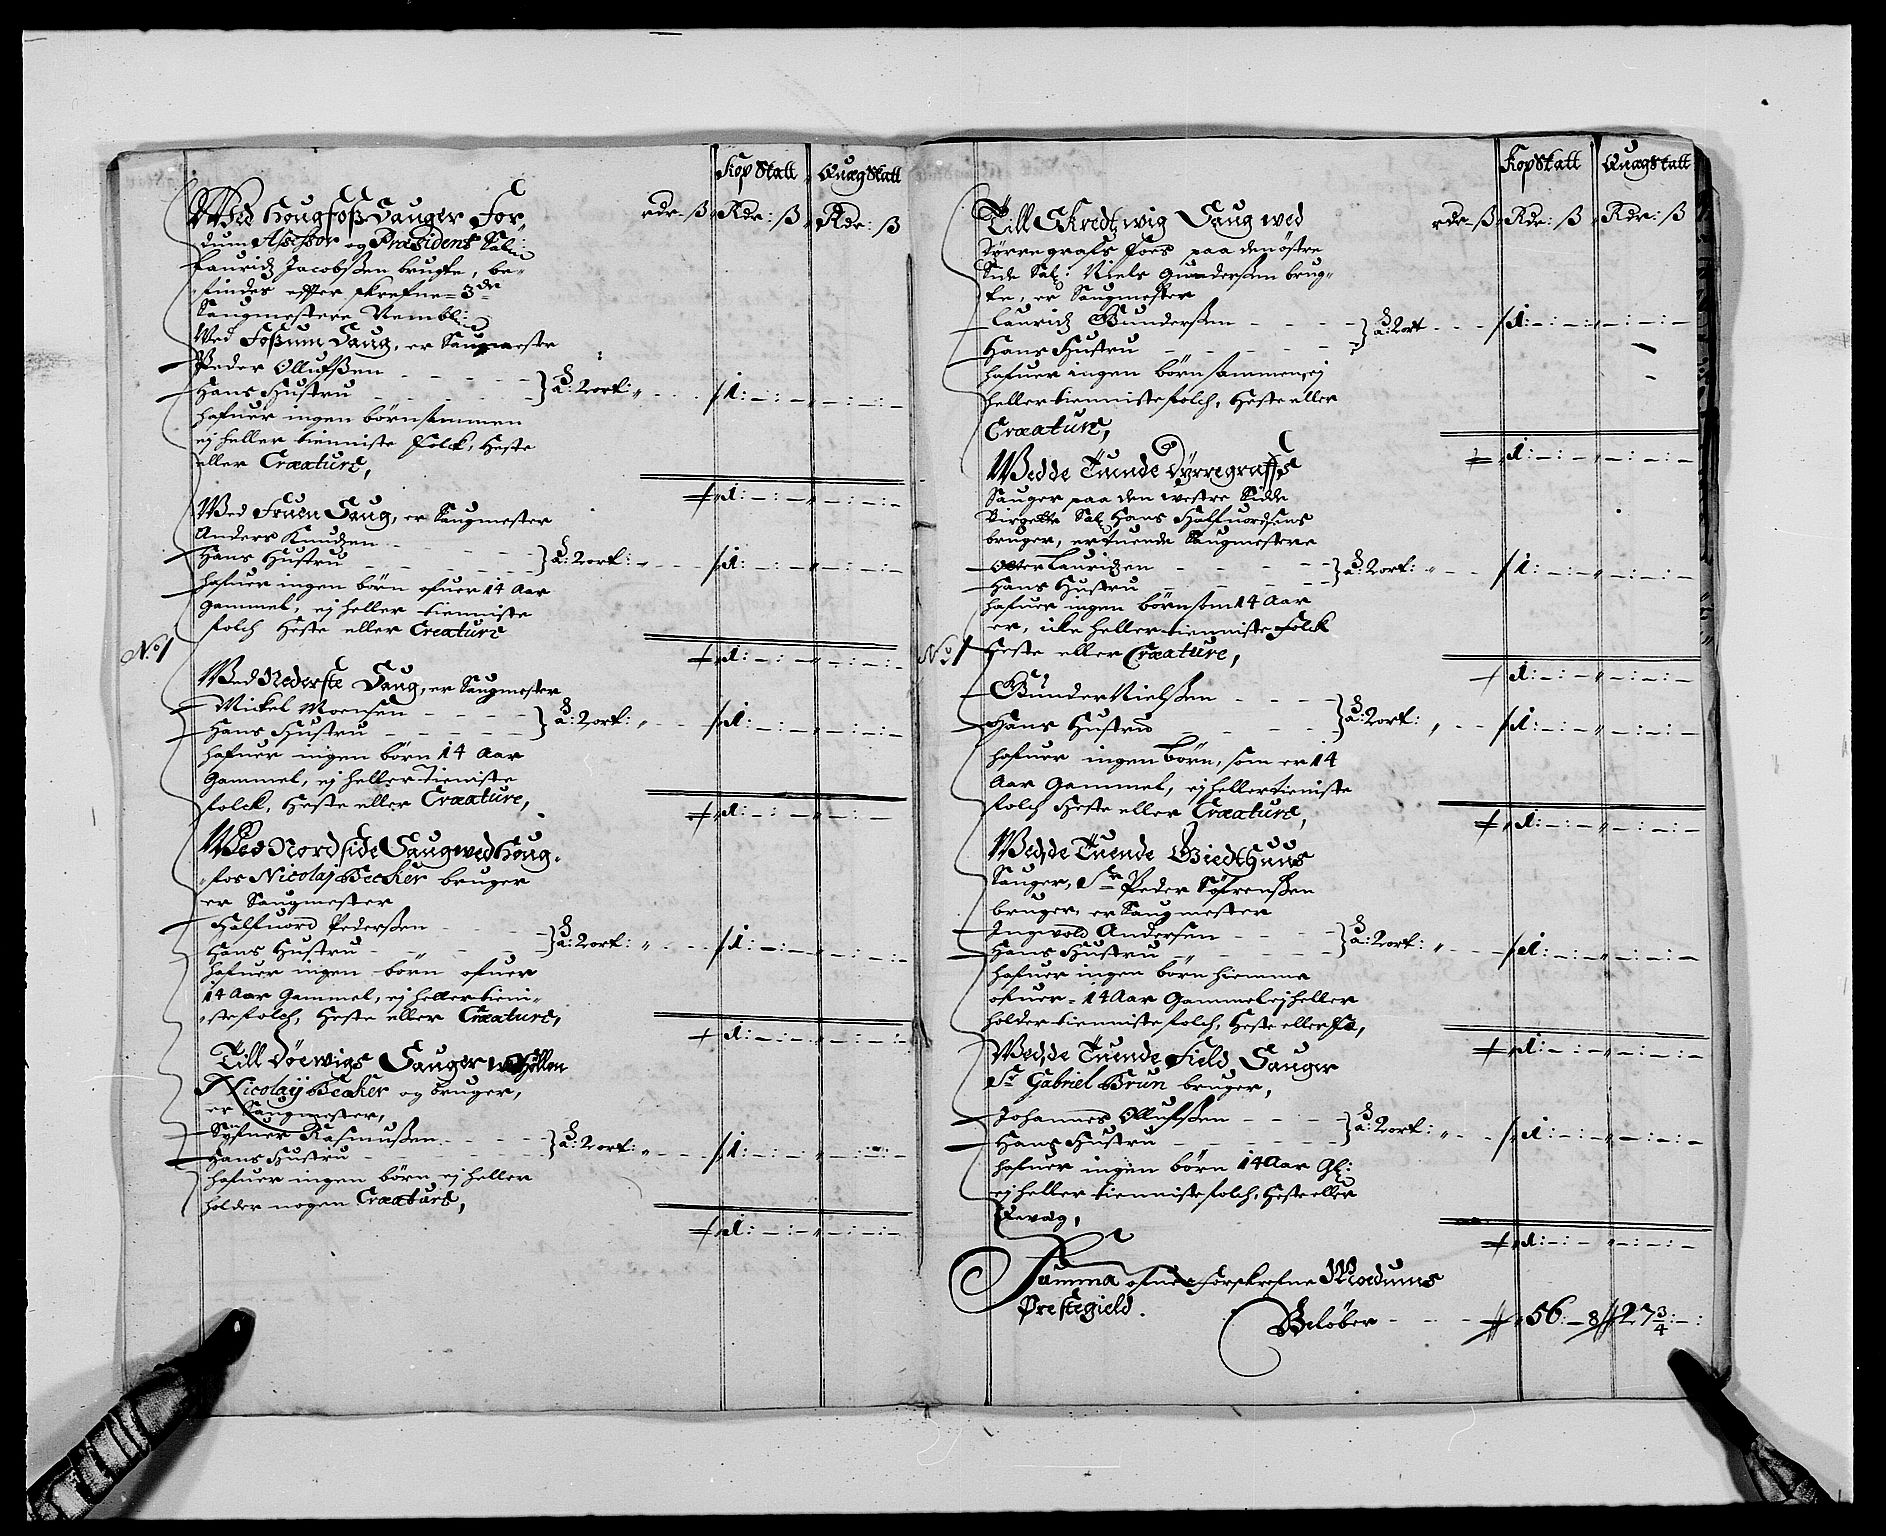 Kop Skatt Quæg Skatt
rdr - ß Rdr: ß Rdr: ß
Wed Hougfoß Sauger For„
dum Assessor og Præsident Sal:
Lauridz Jacobßen brugte, be„
findes effter skrefne 3de
Saugmestere Nembl:
Wed Foßum Saug, er Saugmester
Peder Ollufßen - - - -
Hans Hustru - - - - } å: 2 ort: „ - - - 1: - : -
hafuer ingen börn sammen
ej heller tienniste Folck, Heste
eller Creature,
1: - : -
Wed Fruen Saug, er Saugmester
Anders Knudzen - - -
Hans Hustru - - - } å: 2 ort: - - - 1: - : -
hafuer ingen börn ofuer 14 Aar
gammel, ej heller tienniste
folch Heste eller Creature
No 1
1: - : -
Wed Nederste Saug, er Saugmester
Mickel Moensen - - -
Hans Hustru - - - } å: 2 ort: „ - - 1: - : -
hafuer ingen börn 14 Aar
Gammel, ej heller Tieniste
folck, Heste eller Creature,
1: - : -
Wed Nordside Saug wed Houg„
fos Nicolaj Becker bruger
er Saugmester
Halfuord Pederßen - - -
Hans Hustru - - - } å: 2 ort: „ - - 1: - : -
hafuer ingen börn ofuer
14 Aar Gammel, ej heller tieni„
ste folch, Heste eller Creature,
1: - : -
Till Döewigs Sauger
Nicolaij Becker og bruger,
er Saugmester,
Rasmußen - - -
Hans Hustru - - - } å: 2 ort: „ - - 1: - : -
hafuer ingen börn ej heller
holder nogen Creature,
1: - : -
Kop Skatt Quæg Skatt
rdr - ß Rdr: ß Rdr: ß
Till Skredtzwig Saug wed
Dörregrafs Foes paa den östre
Side Sal: Niels Gundersen brug„
te, er Saugmester
Lauridz Gunderßen - - - -
Hans Hustru - - - - } å: 2 ort - - - 1: - : -
hafuer ingen börn sammen, ej
heller tienniste folch, Heste eller
Creature,
1: - : -
Wed de Tuende Dyrregraffs
Sauger paa den westre Sidde
Birgette Sal: Hans Halfuordsens
bruger, er tuende Saugmestere
Lauridzen - - -
Hans Hustru - - - } å: 2 ort: „ - - 1: - : -
hafuer ingen börn som 14 Aar
er, icke heller tienniste Folck
No 1
Heste eller Creature,
1: - : -
Gunder Nielßen - - -
Hans Hustru - - - } å: 2 ort: „ - - 1: - : -
hafuer ingen börn, som er 14
Aar Gammel, ej heller tieniste
folch Heste eller Creature,
1: - : -
Wed de Tuende Giedthuus
Sauger, Sr Peder Söfrenßen
bruger, er Saugmester
Ingwold Andersen - - -
Hans Hustru - - - } å: 2 ort: „ - - 1: - : -
hafuer ingen börn hiemme
ofuer 14 Aar Gammel ej heller
holder tienniste folch, Heste eller Fæ,
1: - : -
Wed de Tuende Field Sauger
Sr Gabriel Brun bruger,
Johannes Ollufßen - - -
Hans Hustru - - - } å: 2 ort: „ - - 1: - : -
hafuer ingen börn 14 Aar Gl:
ej heller tienniste folch, Heste eller
Queæg,
1: - : -
Summa ofuer forskrefne Modums
Prestegield.
Belöber - - - 56: - 8 27 3/4: - :